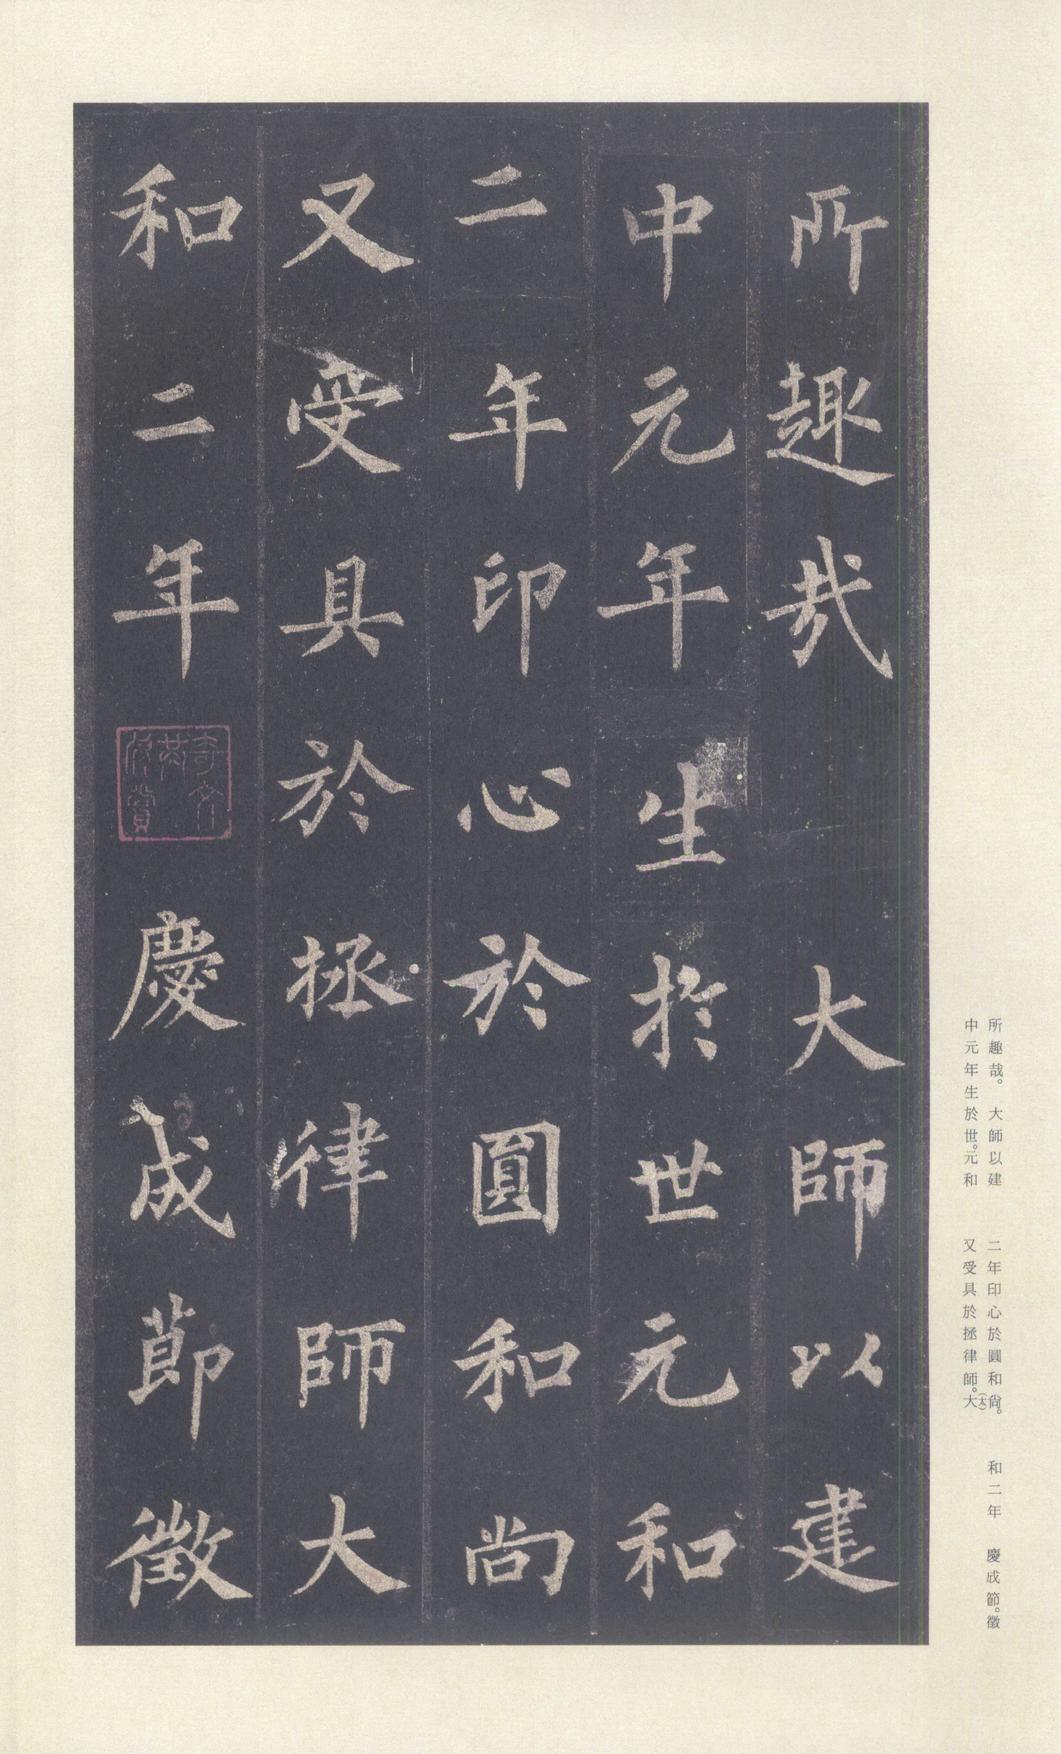 所趣哉　大師以建
中元年生於世元和
二年印心於圓和尚
又受具於拯律師大
和二年　慶成節徵
所趣哉。　大師以建
中元年生於世。元和
二年印心於圓和尚。
又受具於拯律師。大（太）
和二年　慶成節。徵